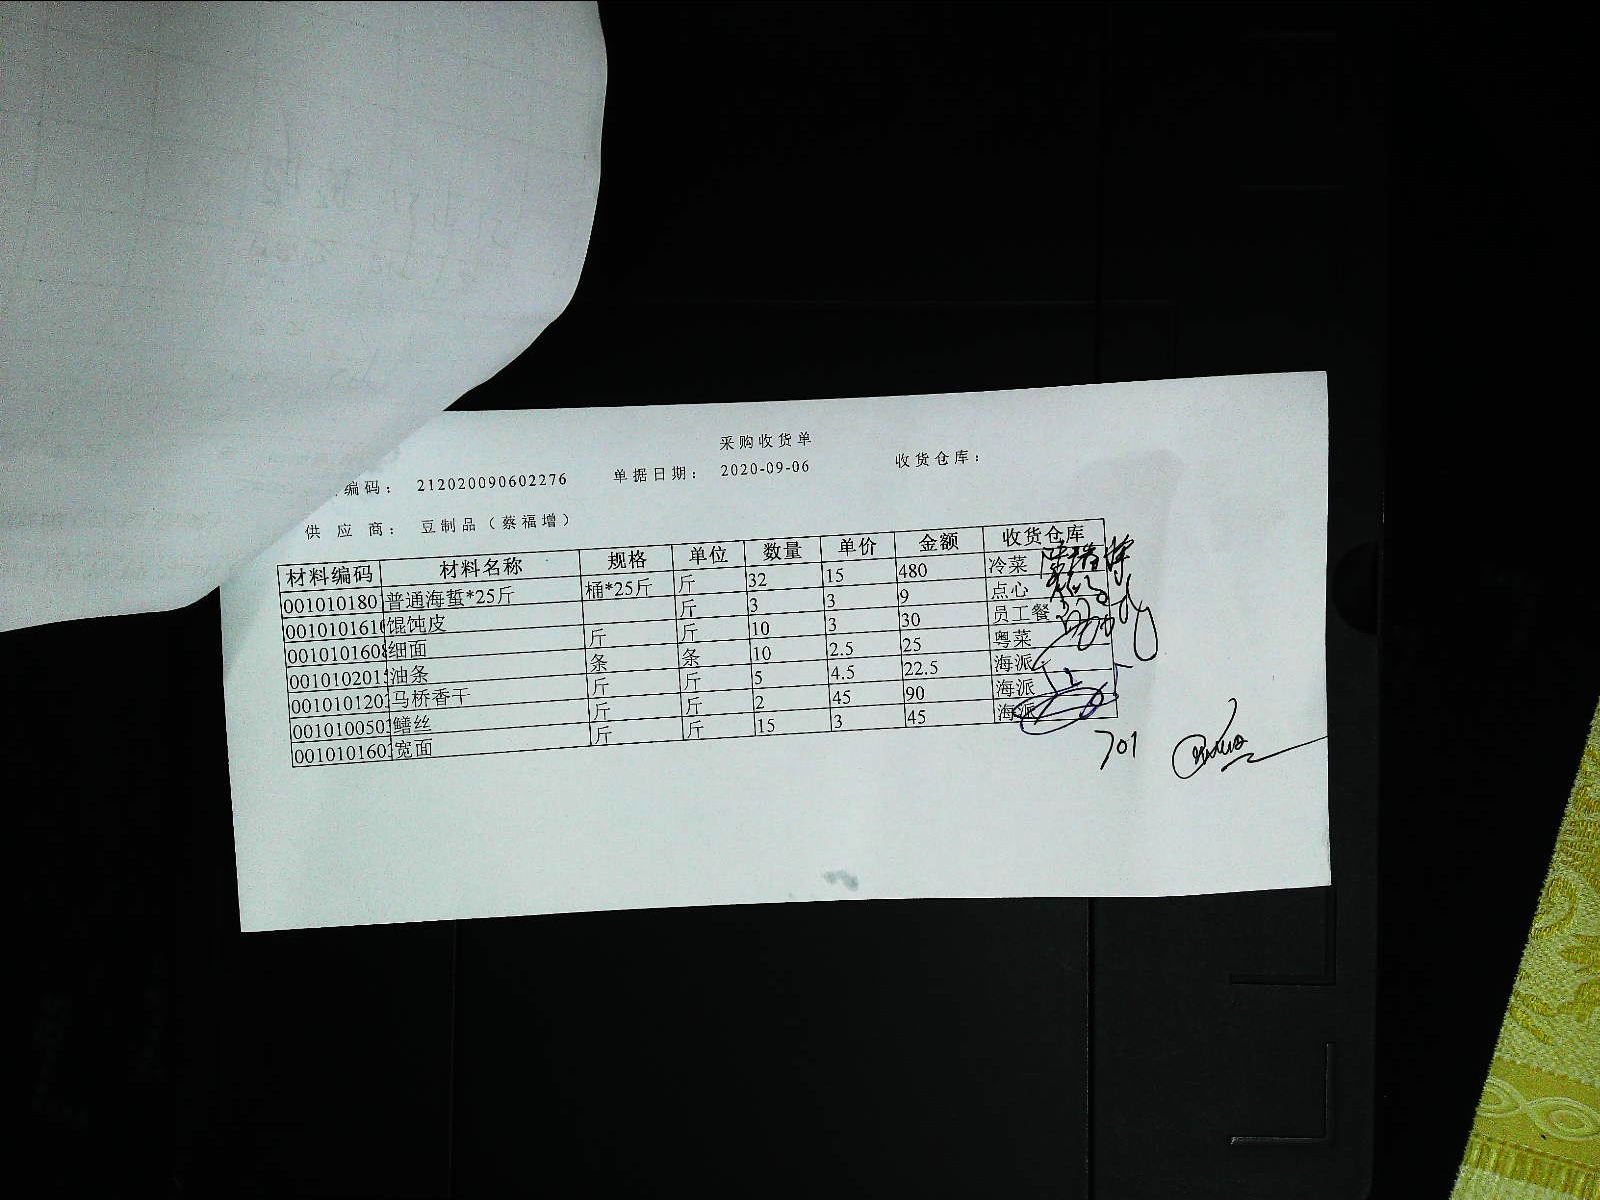 采购收货单
编码： 212020090602276 单据日期： 2020-09-06 收货仓库：
供 应 商： 豆制品（蔡福增）
材料编码 材料名称 规格 单位 数量 单价 金额 收货仓库
001010180 普通海蜇*25斤 桶*25斤 斤 32 15 480 冷菜
0010101610 馄饨皮 斤 3 3 9 点心
0010101608 细面 斤 斤 10 3 30 员工餐
0010102015 油条 条 条 10 2.5 25 粤菜
001010120 马桥香干 斤 斤 5 4.5 22.5 海派
001010050 鳝丝 斤 斤 2 45 90 海派
001010160 宽面 斤 斤 15 3 45 海派
701